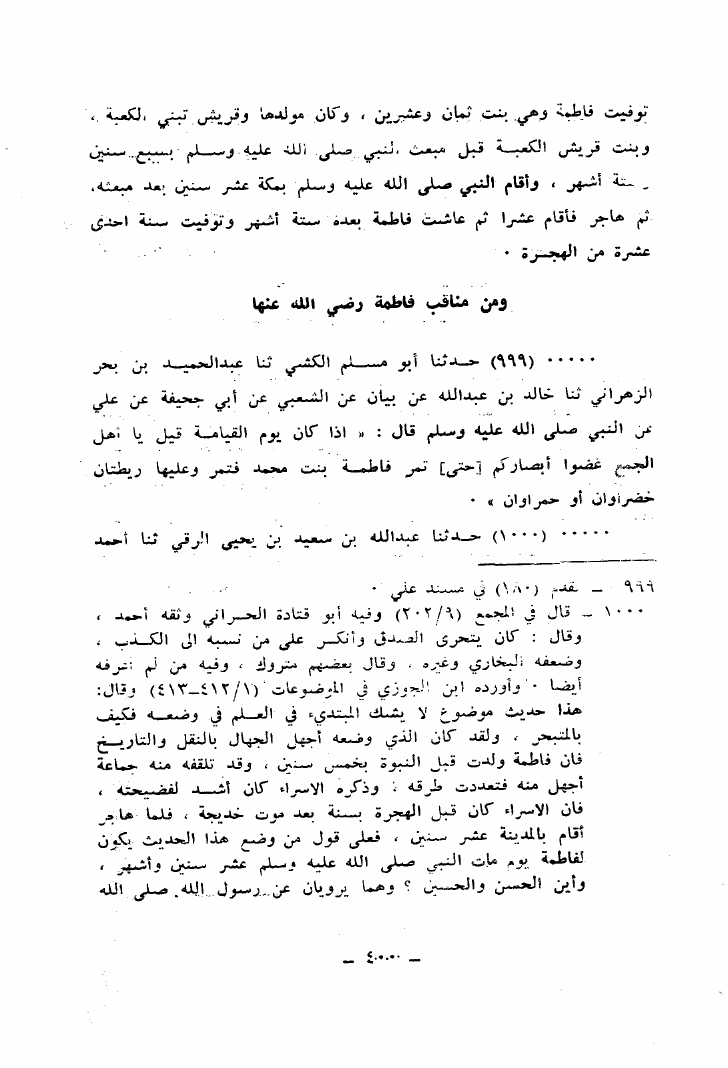 توفيت فاطمة وهي بنت ثمان وعشرين ، وكان مولدها وقريش تبني الكعبة ،
وبنت قريش الكعبــة قبل مبعث النبي صلى الله عليه وسـلم بسبع سنين
ستة أشهر ، وأقام النبي صلى الله عليه وسلم بمكة عشر سنين بعد مبعثه،
ثم هاجر فأقام عشرا ثم عاشت فاطمة بعده ستة أشهر وتوفيت سنة احدى
عشرة من الهجرة ٠
ومن مناقب فاطمة رضي الله عنها
٠٠٠٠٠ (٩٩٩) حـدثنا أبو مسـلم الكشي ثنا عبدالحميـد بن بحر
الزهراني ثنا خالد بن عبدالله عن بيان عن الشعبي عن أبي جحيفة عن علي
عن النبي صلى الله عليه وسلم قال : « اذا كان يوم القيامـة قيل يا أهل
الجمع غضوا أبصاركم [حتى] تمر فاطمـة بنت محمد فتمر وعليها ريطتان
خضراوان أو حمراوان » ٠
٠٠٠٠٠ (١٠٠٠) حـدثنا عبدالله بن سعيد بن يحيى الرقي ثنا أحمد
٩٩٩ – تقدم (١٨٠) في مسند علي ٠
١٠٠٠ – قال في المجمع (٢٠٢/٩) وفيه أبو قتادة الحـراني وثقه أحمد ،
وقال : كان يتحرى الصدق وأنكـر على من نسبه الى الكـذب ،
وضعفه البخاري وغيره ، وقال بعضهم متروك ، وفيه من لم أعرفه
أيضا ٠ وأورده ابن الجوزي في الموضوعات (٤١٢/١–٤١٣) وقال:
هذا حديث موضوع لا يشك المبتديء في العـلم في وضعـه فكيف
بالمتبحر ، ولقد كان الذي وضعه أجهل الجهال بالنقل والتاريـخ
فان فاطمة ولدت قبل النبوة بخمس سنين ، وقد تلقفه منه جماعة
أجهل منه فتعددت طرقه ، وذكره الاسراء كان أشـد لفضيحته ،
فان الاسراء كان قبل الهجرة بسنة بعد موت خديجة ، فلما هاجر
أقام بالمدينة عشر سنين ، فعلى قول من وضع هذا الحديث يكون
لفاطمة يوم مات النبي صلى الله عليه وسلم عشر سنين وأشهر ،
وأين الحسن والحسين ؟ وهما يرويان عن رسول الله صلى الله